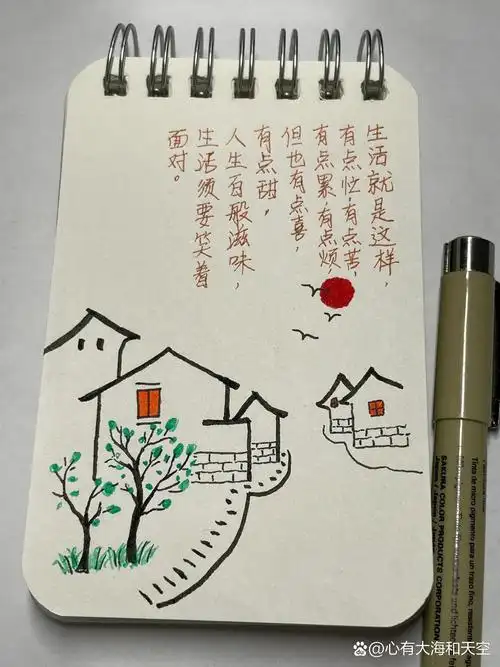 生活就是这样，
有点忙，有点苦，
有点累，有点烦，
但也有点喜，
有点甜，
人生百般滋味，
生活须要笑着
面对。
Tinta de micro pigmento para un trazo fino,
SAKURA COLOR PRODUCTS
CORPORATION
心有大海和天空